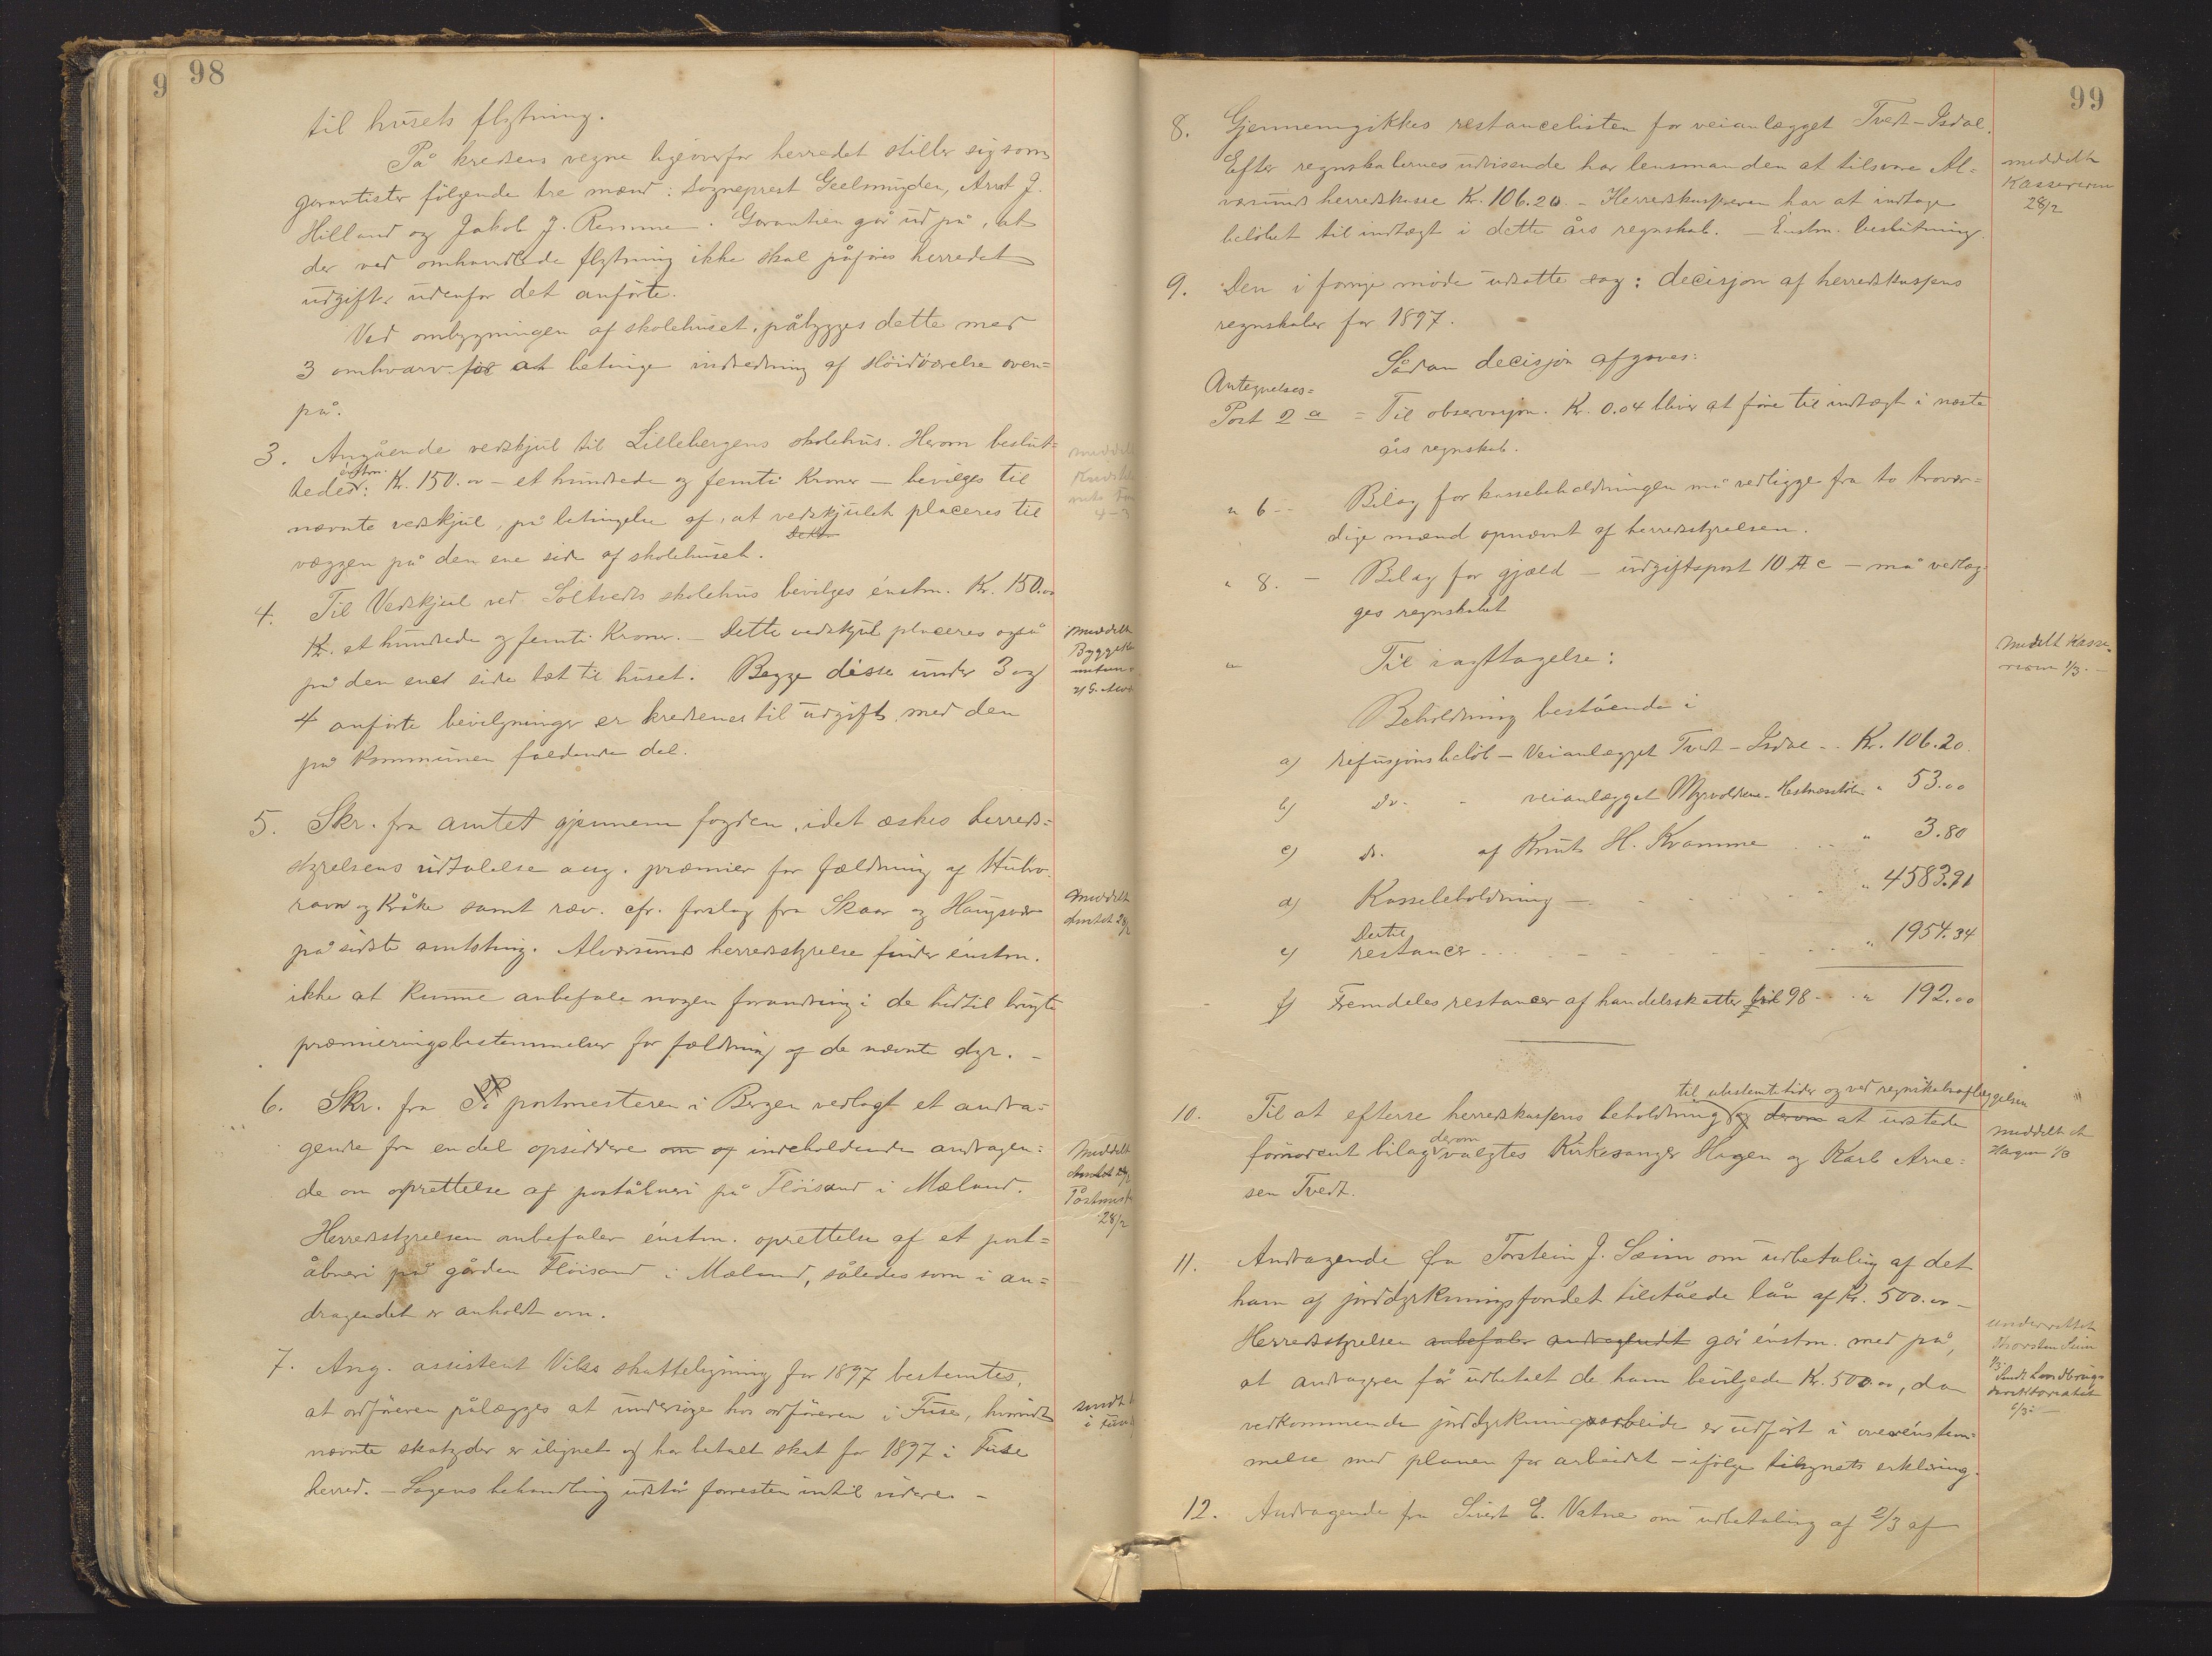 98
til husets flytning.
På kredsens vegne ligeoverfor herredet stiller sig som
garantister følgende tre mænd: Sogneprest Geelmuyden, Arnt J.
Hilland og Jakob J. Remme. Garantien går ud på, at
der ved omhandlede flytning ikke skal påføres herredet
udgifter udenfor det anførte.
Ved ombygningen af skolehuset, påbygges dette med
3 omhvarv for at betinge indredning af sløidværelse oven=
på.
3. Angående vedskjul til Lillebergens skolehus. Herom beslut=
enstm.
tedes: Kr. 150.00 – et hundrede og femti Kroner – bevilges til
nævnte vedskjul, på betingelse af, at vedskjulet placeres til
væggen på den ene side af skolehuset.
4. Til Vedskjul ved Soltvedts skolehus bevilges énstm. Kr. 150.00
Kr. et hundrede og femti Kroner. – Dette vedskjul placeres også
på den ene side tæt til huset. Begge disse under 3 og
4 anførte bevilgninger er kredsenes til udgift med den
på Kommunen faldende del.
5. Skr. fra amtet gjennem fogden, idet æskes herreds=
styrelsens udtalelse ang. præmier for fældning af
ravn og Kråke samt ræv. cfr. forslag fra Skaar og Haugsvær
på sidste amtsting. Alversunds herredsstyrelse finder énstm.
ikke at kunne anbefale nogen forandring i de hidtil brugte
præmieringsbestemmelser for fældning af de nævnte dyr. –
6. Skr. fra postmesteren i Bergen vedlagt et andra=
gende fra en del opsiddere om og indeholdende andragen=
de om oprettelse af poståbneri på Fløisand i Mæland.
Herredsstyrelsen anbefaler énstm. oprettelse af et post=
åbneri på gården Fløisand i Mæland, således som i an=
dragendet er anholdt om.
7. Ang. assistent Viks skatteligning for 1897 bestemtes,
at ordføreren pålægges at undersøge hos ordføreren i Fuse, hvorvidt
nævnte skatyder er ilignet og har betalt skat for 1897 i Fuse
herred. – Sagens behandling udstår forresten indtil videre. –
Meddelt
Amtet 28/2
Meddelt
Amtet 28/2
Postmest
28/2
sendt
99
8. Gjennemgikkes restancelisten for veianlægget Tvedt – Isdal.
Efter regnskabernes udvisende har lensmanden at tilsvare Al=
versunds herredskasse Kr. 106.20. – Herredskassereren har at indtage
beløbet til indtægt i dette års regnskab. – Enstm. beslutning.
meddelt
Kassereren
28/2
9. Den i forrige møde udsatte sag: decisjon af herredskassens
regnskaber for 1897.
Sådan decisjon afgaves:
Antegnelses=
Post 2 a = Til observasjon. Kr. 0.04 bliver at føre til indtægt i næste
års regnskab.
" 6 – Bilag for kassebeholdningen må vedligge fra to trovær=
dige mænd opnævnt af herredsstyrelsen.
" 8. – Bilag for gjæld – udgiftspost 10 A c – må vedlæg=
ges regnskabet
Til iagttagelse:
Meddelt Kasse=
reren 1/3. –
Beholdning bestående i
a) refusjonsbeløb – Veianlægget Tvedt – Isdal .. Kr. 106.20.
b) Do. - veianlægget Myrvoldene – Hestnesstølen " 53.00
c) Do. af Knut H. Kvamme " 3.80
d) Kassebeholdning – " 4583.91
Dertil
e) restancer " 1954.34
f) Fremdeles restancer af handelsskatter 98 " 192.00
til ubestemte tider og ved regnskabsaflæggelsen
10. Til at efterse herredskassens beholdning og derom at udstede
derom
fornødent bilag valgtes Kirkesanger Hagen og Karl Arne=
sen Tvedt.
meddelt
Hagen 1/3
11. Andragende fra Torstein J. Seim om udbetaling af det
ham af jorddyrkningsfondet tilståede lån af Kr. 500.00 –
Herredsstyrelsen anbefaler andragendet går énstm. med på,
at andrageren får udbetalt de ham bevilgede Kr. 500.00, da
vedkommende jorddyrkningsarbeide er udført i overénstem=
melse med planen for arbeidet – ifølge tilsynets erklæring.
underrettet
Thorstein Seim
1/3
Sendt Landbrugs
direktoratet
6/3
12. Andragende fra Sivert E. Vatne om udbetaling af 2/3 af